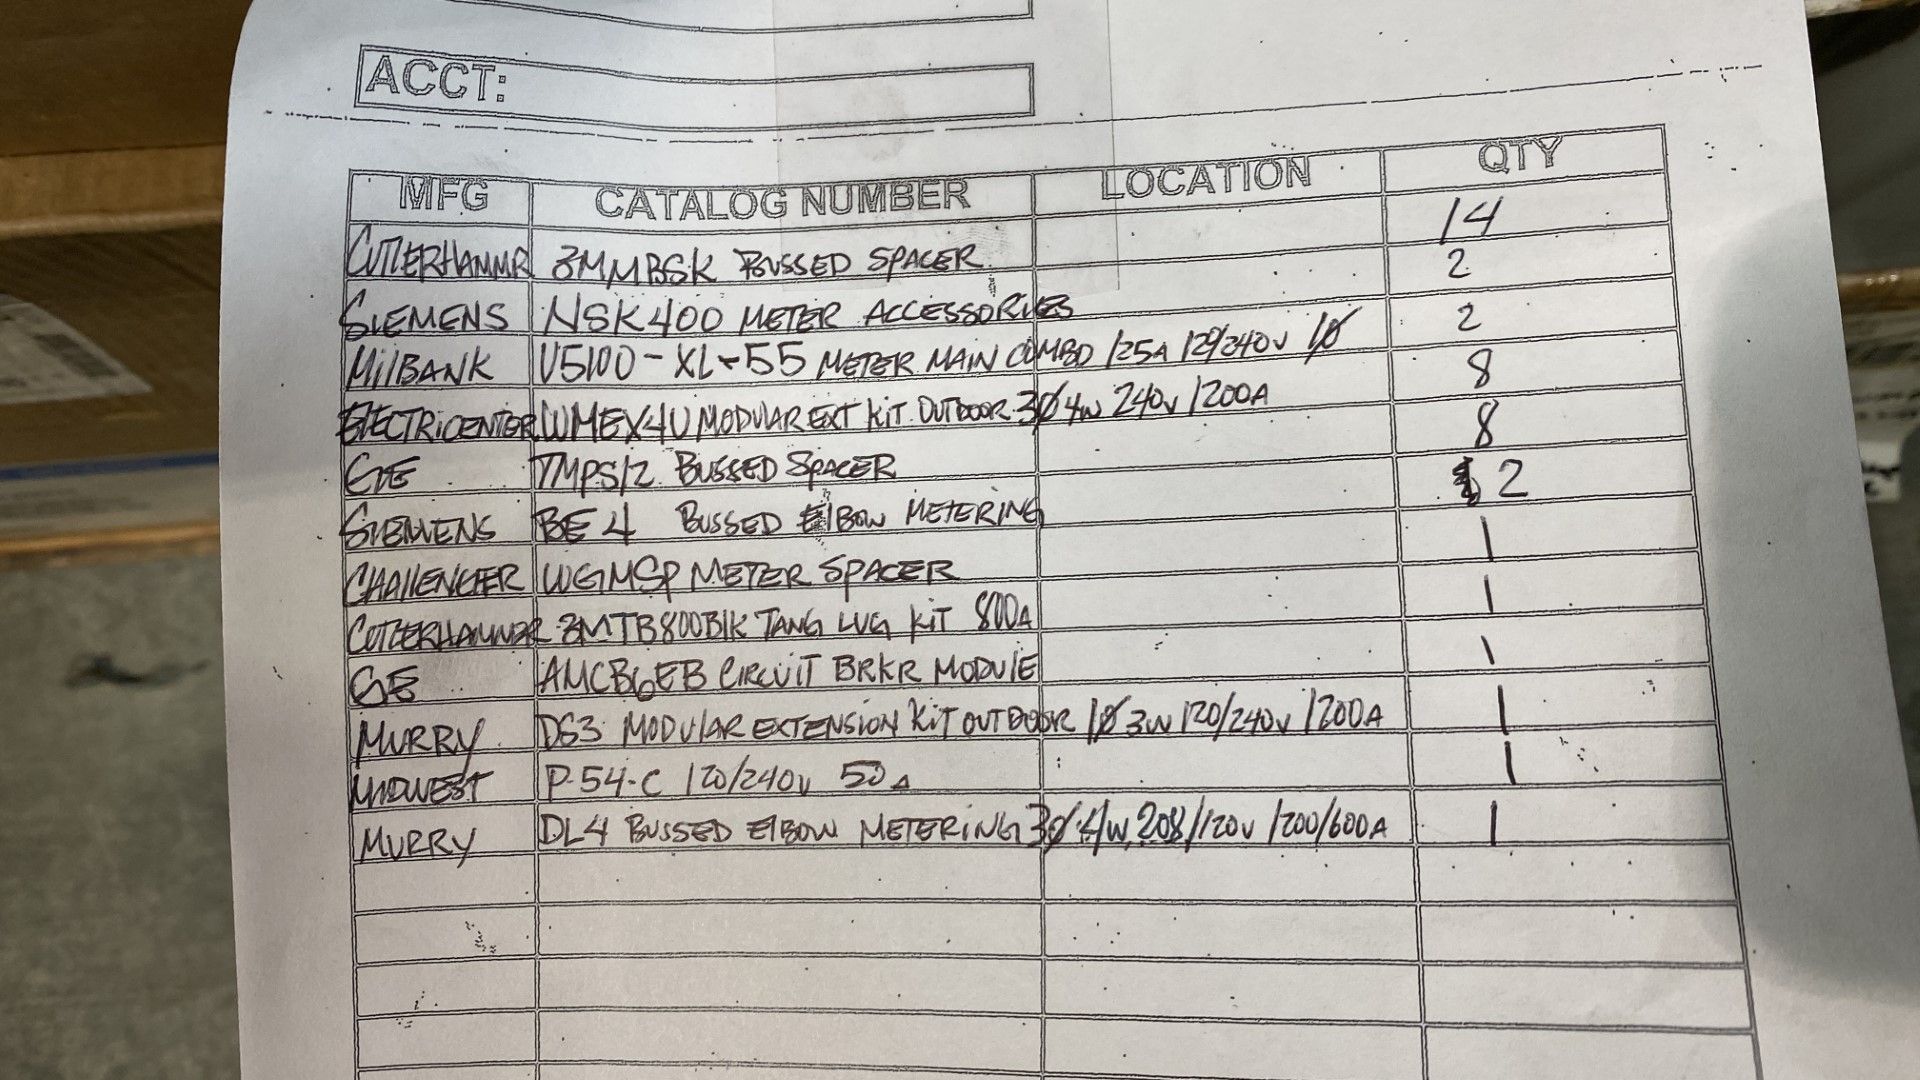 ACCT:
MFG CATALOG NUMBER LOCATION QTY
CUTLERHAMMR 3MMBSK BUSSED SPACER 14
SIEMENS NSK400 METER ACCESSORIES 2
MilBANK U5100-XL-55 METER MAIN COMBO 125A 120/240V 1Ø 2
ELECTRICENTER WMEX4U MODULAR EXT KIT OUTDOOR 3Ø 4W 240V 1200A 8
GE TMPS12 BUSSED SPACER 8
SIEMENS BE 4 BUSSED ElBOW METERING 2
CHALLENGER WGMSP METER SPACER 1
CUTLERHAMMER 3MTB800BIK TANG LUG KIT 800A 1
GE AMCB6EB CIRCUIT BRKR MODULE 1
MURRY DG3 MODULAR EXTENSION KIT OUTDOOR 1Ø 3W 120/240V 1200A 1
MIDWEST P-54-C 120/240V 50A 1
MURRY DL4 BUSSED ElBOW METERING 3Ø 4W 208/120V 1200/600A 1